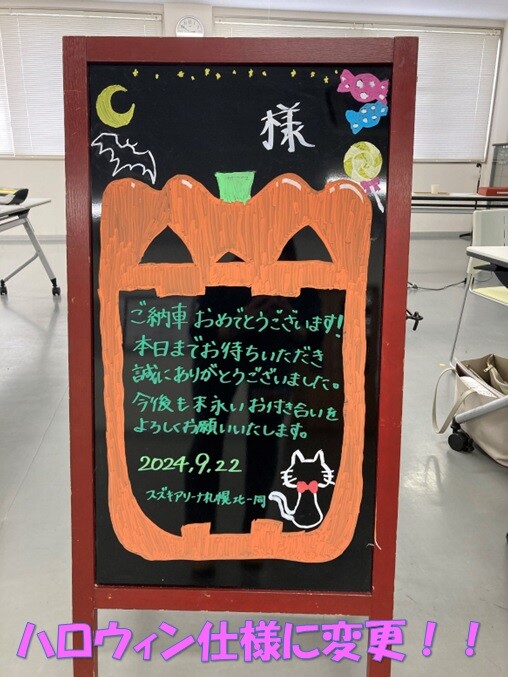 様
ご納車 おめでとうございます!
本日までお待ちいただき
誠にありがとうございました。
今後も末永いお付き合いを
よろしくお願いいたします。
2024.9.22
スズキアリーナ札幌北一同
ハロウィン仕様に変更！！